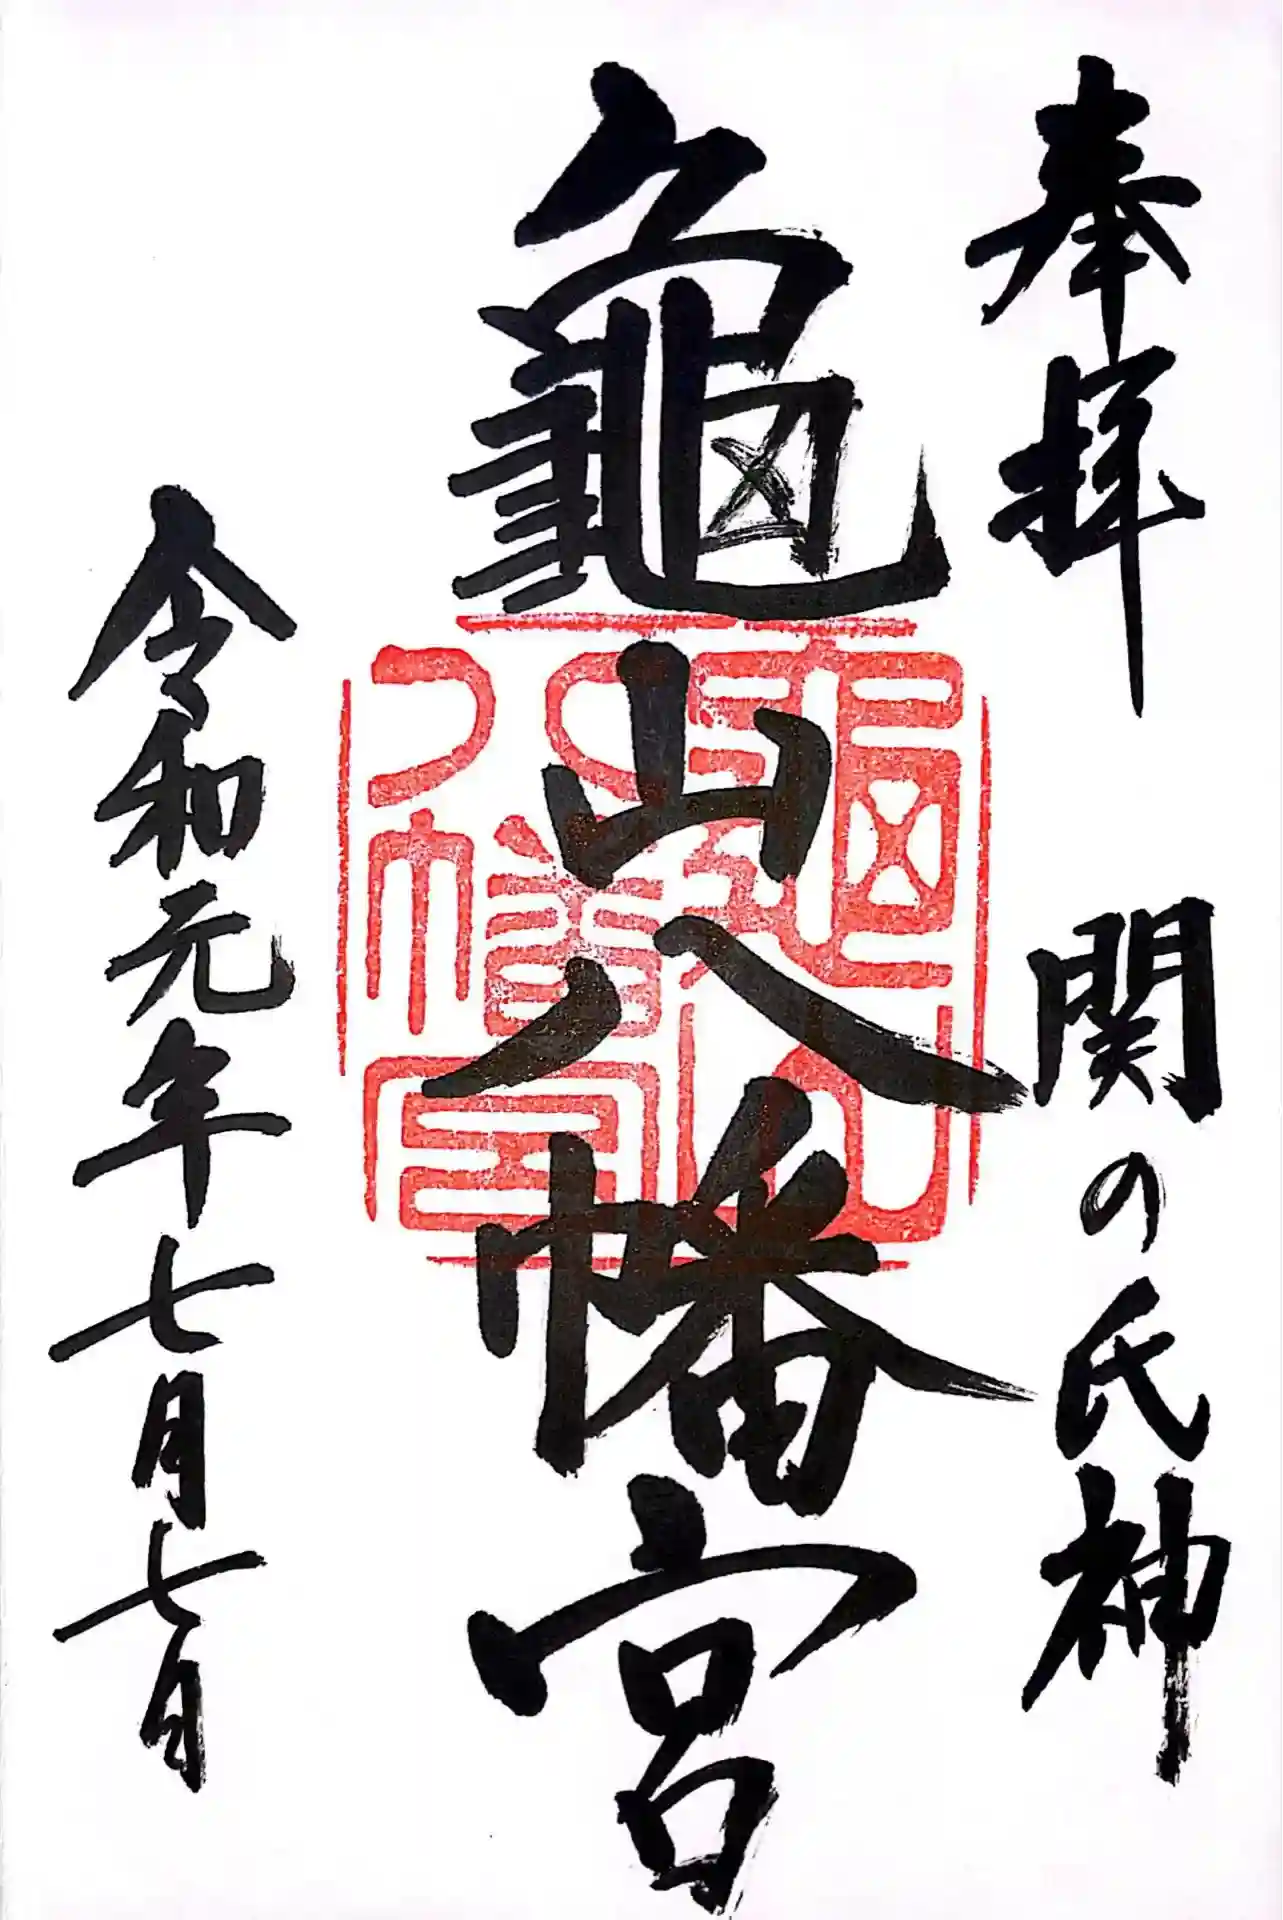 奉拝 関の氏神
龜山八幡宮
令和元年七月七日
龜山
八幡宮